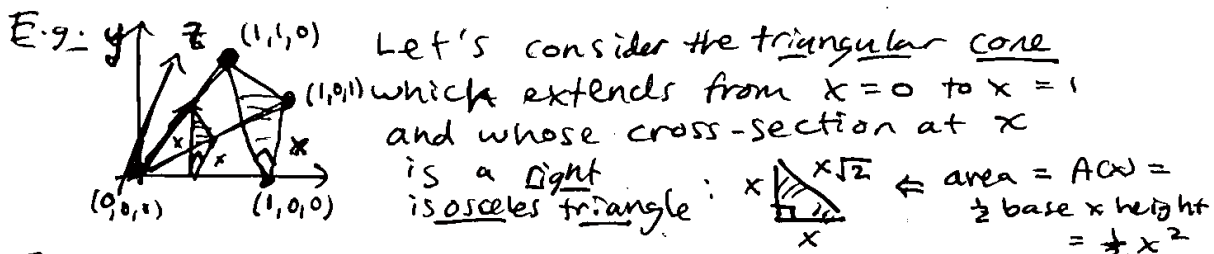 E.g.: y z (1,1,0) Let's consider the triangular cone
(1,0,1) which extends from x = 0 to x = 1
and whose cross-section at x
x x x is a right
isosceles triangle: x x√2 x ⇐ area = A(x) =
(0,0,0) (1,0,0) ½ base x height
= ½ x²